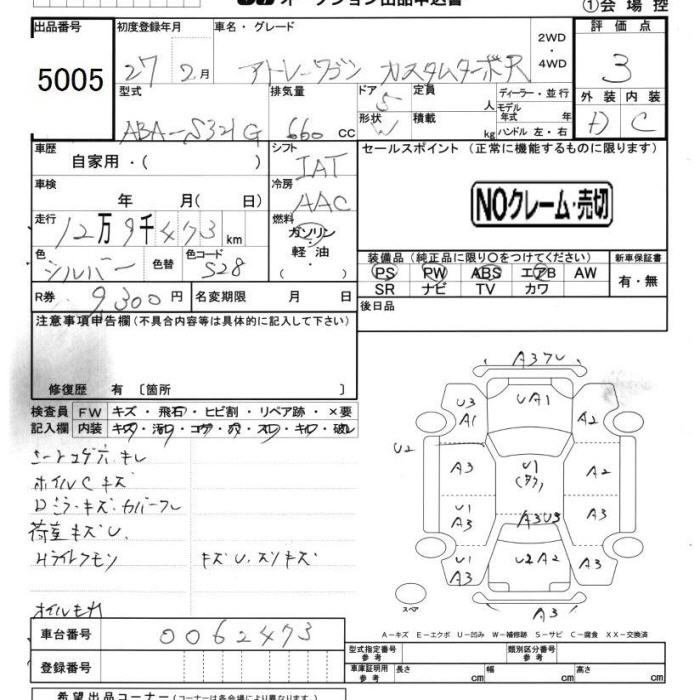 オークション出品申込書
①会場控
出品番号 5005
初度登録年月 27 2月
車名・グレード アトレーワゴン カスタムターボR
2WD・4WD
評価点 3
型式 ABA-S321G
排気量 660 cc
ドア 5
形状 W
定員 人
積載 kg
ディーラー・並行
モデル年式 年
ハンドル 左・右
外装 D
内装 C
車歴 自家用・( )
シフト IAT
セールスポイント (正常に機能するものに限ります)
NOクレーム・売切
車検 年 月( 日)
冷房 AAC
走行 12万9千473km
燃料 ガソリン・軽油・( )
色 シルバー 色替
色コード S28
装備品 (純正品に限り〇をつけてください)
新車保証書
PS PW ABS エアB AW
有・無
SR ナビ TV カワ
R券 9,300円
名変期限 月 日
後日品
注意事項申告欄 (不具合内容等は具体的に記入して下さい)
修復歴 有 [箇所 ]
検査員記入欄
FW キズ・飛石・ヒビ割・リペア跡・×要
内装 キズ・汚レ・コゲ・穴・スレ・キレ・破レ
シートコゲ穴.キレ
ホイルCキズ
Dミラーキズ.カバーフレ
荷室キズU.
Hライトクモリ キズU.スリキズ
オイルモレ
A3フU
U3 A1
UA1
A2
U2
A3
U1
A2
U1 A3
A3U3
A3
U1 A3
U2A2
A3
A3
スペア
A-キズ E-エクボ U-凹み W-補修跡 S-サビ C-腐食 XX-交換済
車台番号 0062473
型式指定番号 参考
類別区分番号 参考
登録番号
車庫証明用 参考 長さ cm 幅 cm 高さ cm
希望出品コーナー (コーナーは各会場により異なります)